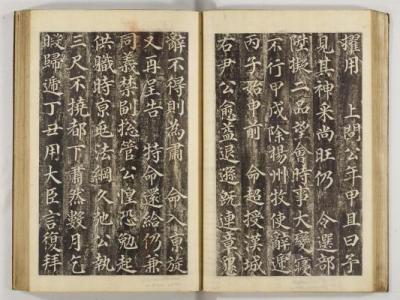 擢用 上問公年甲且曰予
見其神采尚旺仍 令選部
陞擬二品望會時事大變寢
不行甲戌除楊州牧使辭遞
丙子始申前 命超授漢城
右尹公愈益退遜旣連章懇
辭不得則為肅 命入東旋
又再呈告 特命遞給仍兼
同義禁副摠管公惶恐勉起
供職時京兆法綱久弛公執
三尺不撓都下肅然數月乞
暇歸遞丁丑用大臣言復拜